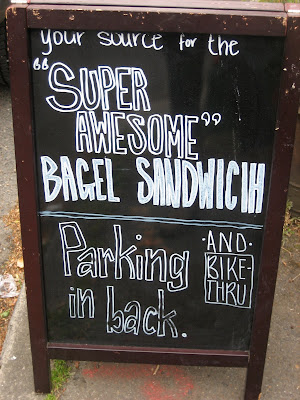 your source for the
"SUPER
AWESOME"
BAGEL SANDWICH
Parking
in back.
·AND·
BIKE-
THRU